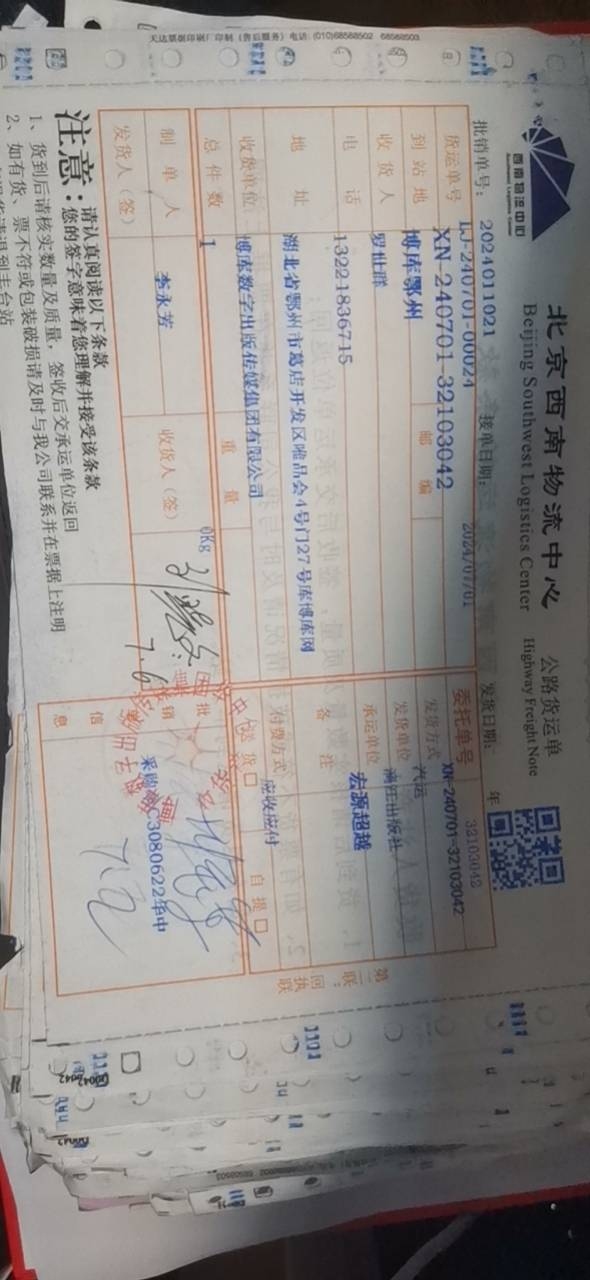 天达票据印刷厂印制（售后服务）电话：(010)68568502 68568503
西南物流中心
Southwest Logistics Center
北京西南物流中心 公路货运单
Beijing Southwest Logistics Center Highway Freight Note
批销单号：2024011021 接单日期：2024/07/01 发货日期： 年
LJ-240701-00024
货运单号 XN-240701-32103042
32103042
委托单号 XN-240701-32103042
到站地 博库鄂州 邮编
发货方式 汽运
收货人 罗世群
发货单位 漓江出版社
电话 13221836715
承运单位 宏源超越
地址 湖北省鄂州市葛店开发区唯品会4号门27号库博库网
备注
收货单位 博库数字出版传媒集团有限公司
付费方式 应收应付
总件数 1 重量 0Kg
送货□ 自提□
制单人 李永芳 收货人（签）
7.6
发货人（签）
批销信息
采购 C3080622华中
第二联：回执联
注意：
请认真阅读以下条款
您的签字意味着您理解并接受该条款
1、货到后请核实数量及质量，签收后交承运单位返回
2、如有货、票不符或包装破损请及时与我公司联系并在票据上注明